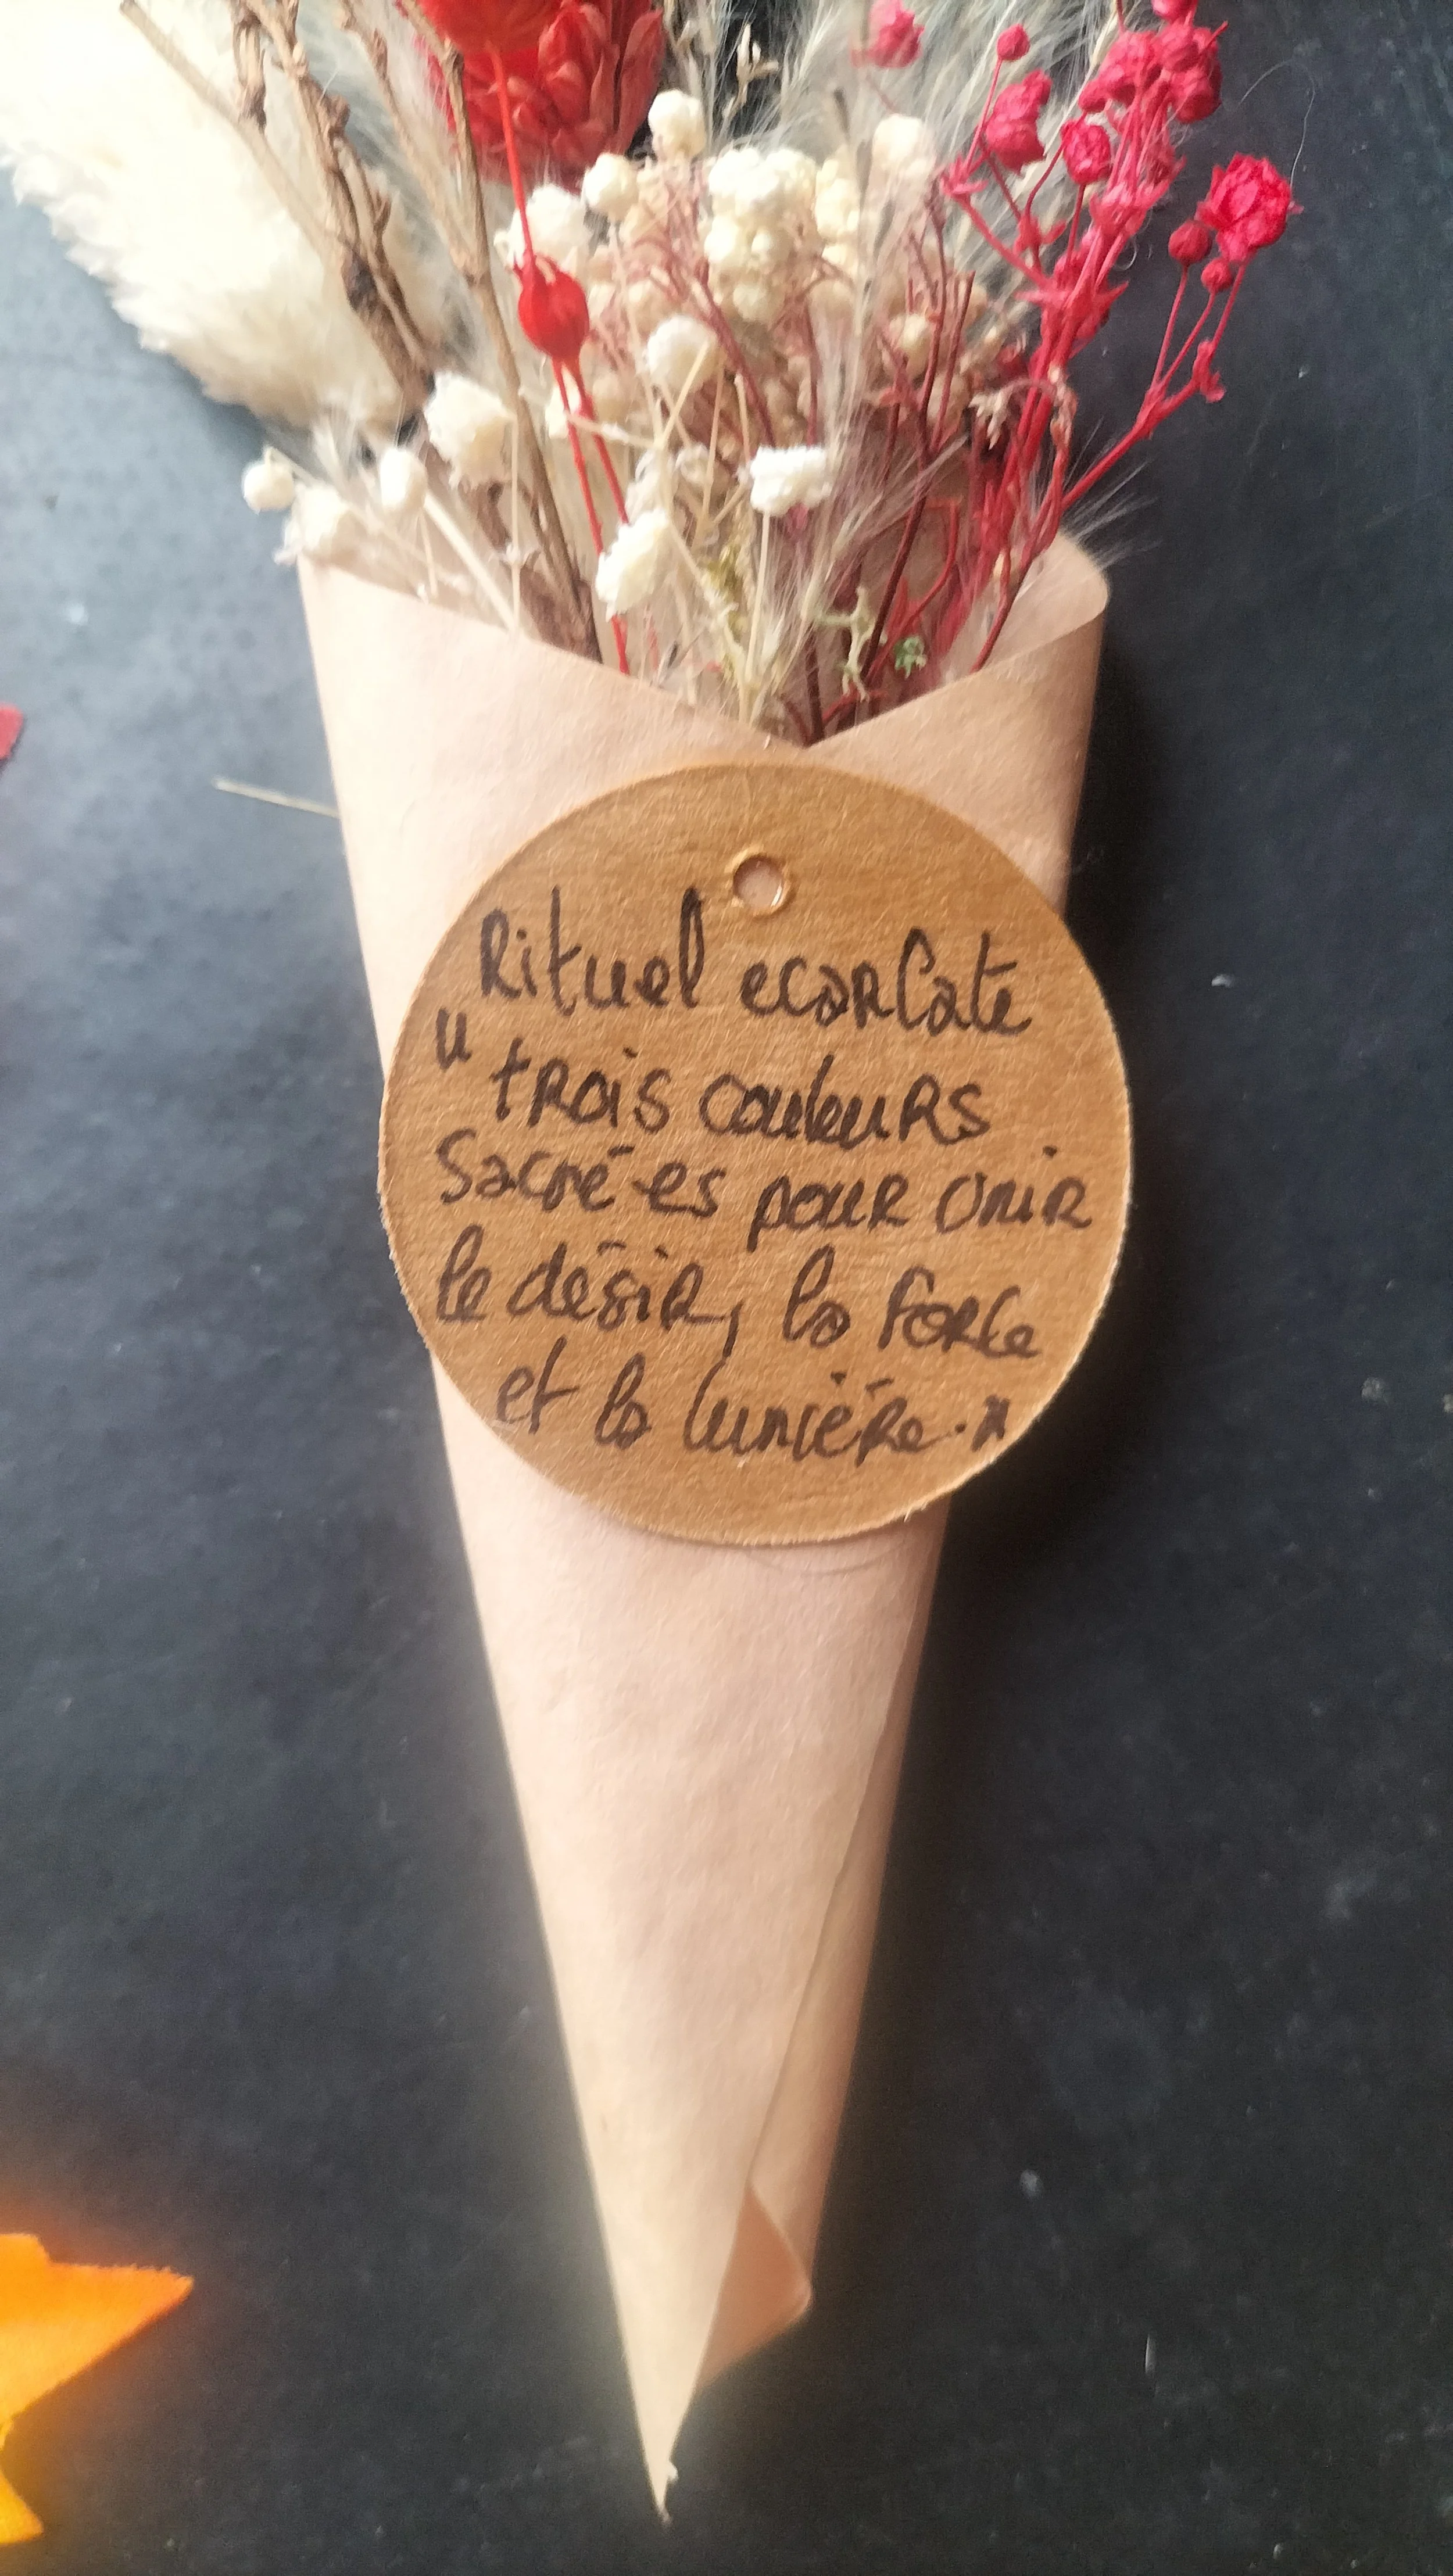 Rituel ecarlate
" trois couleurs
Sacrées pour unir
le désir, la force
et la lumière."